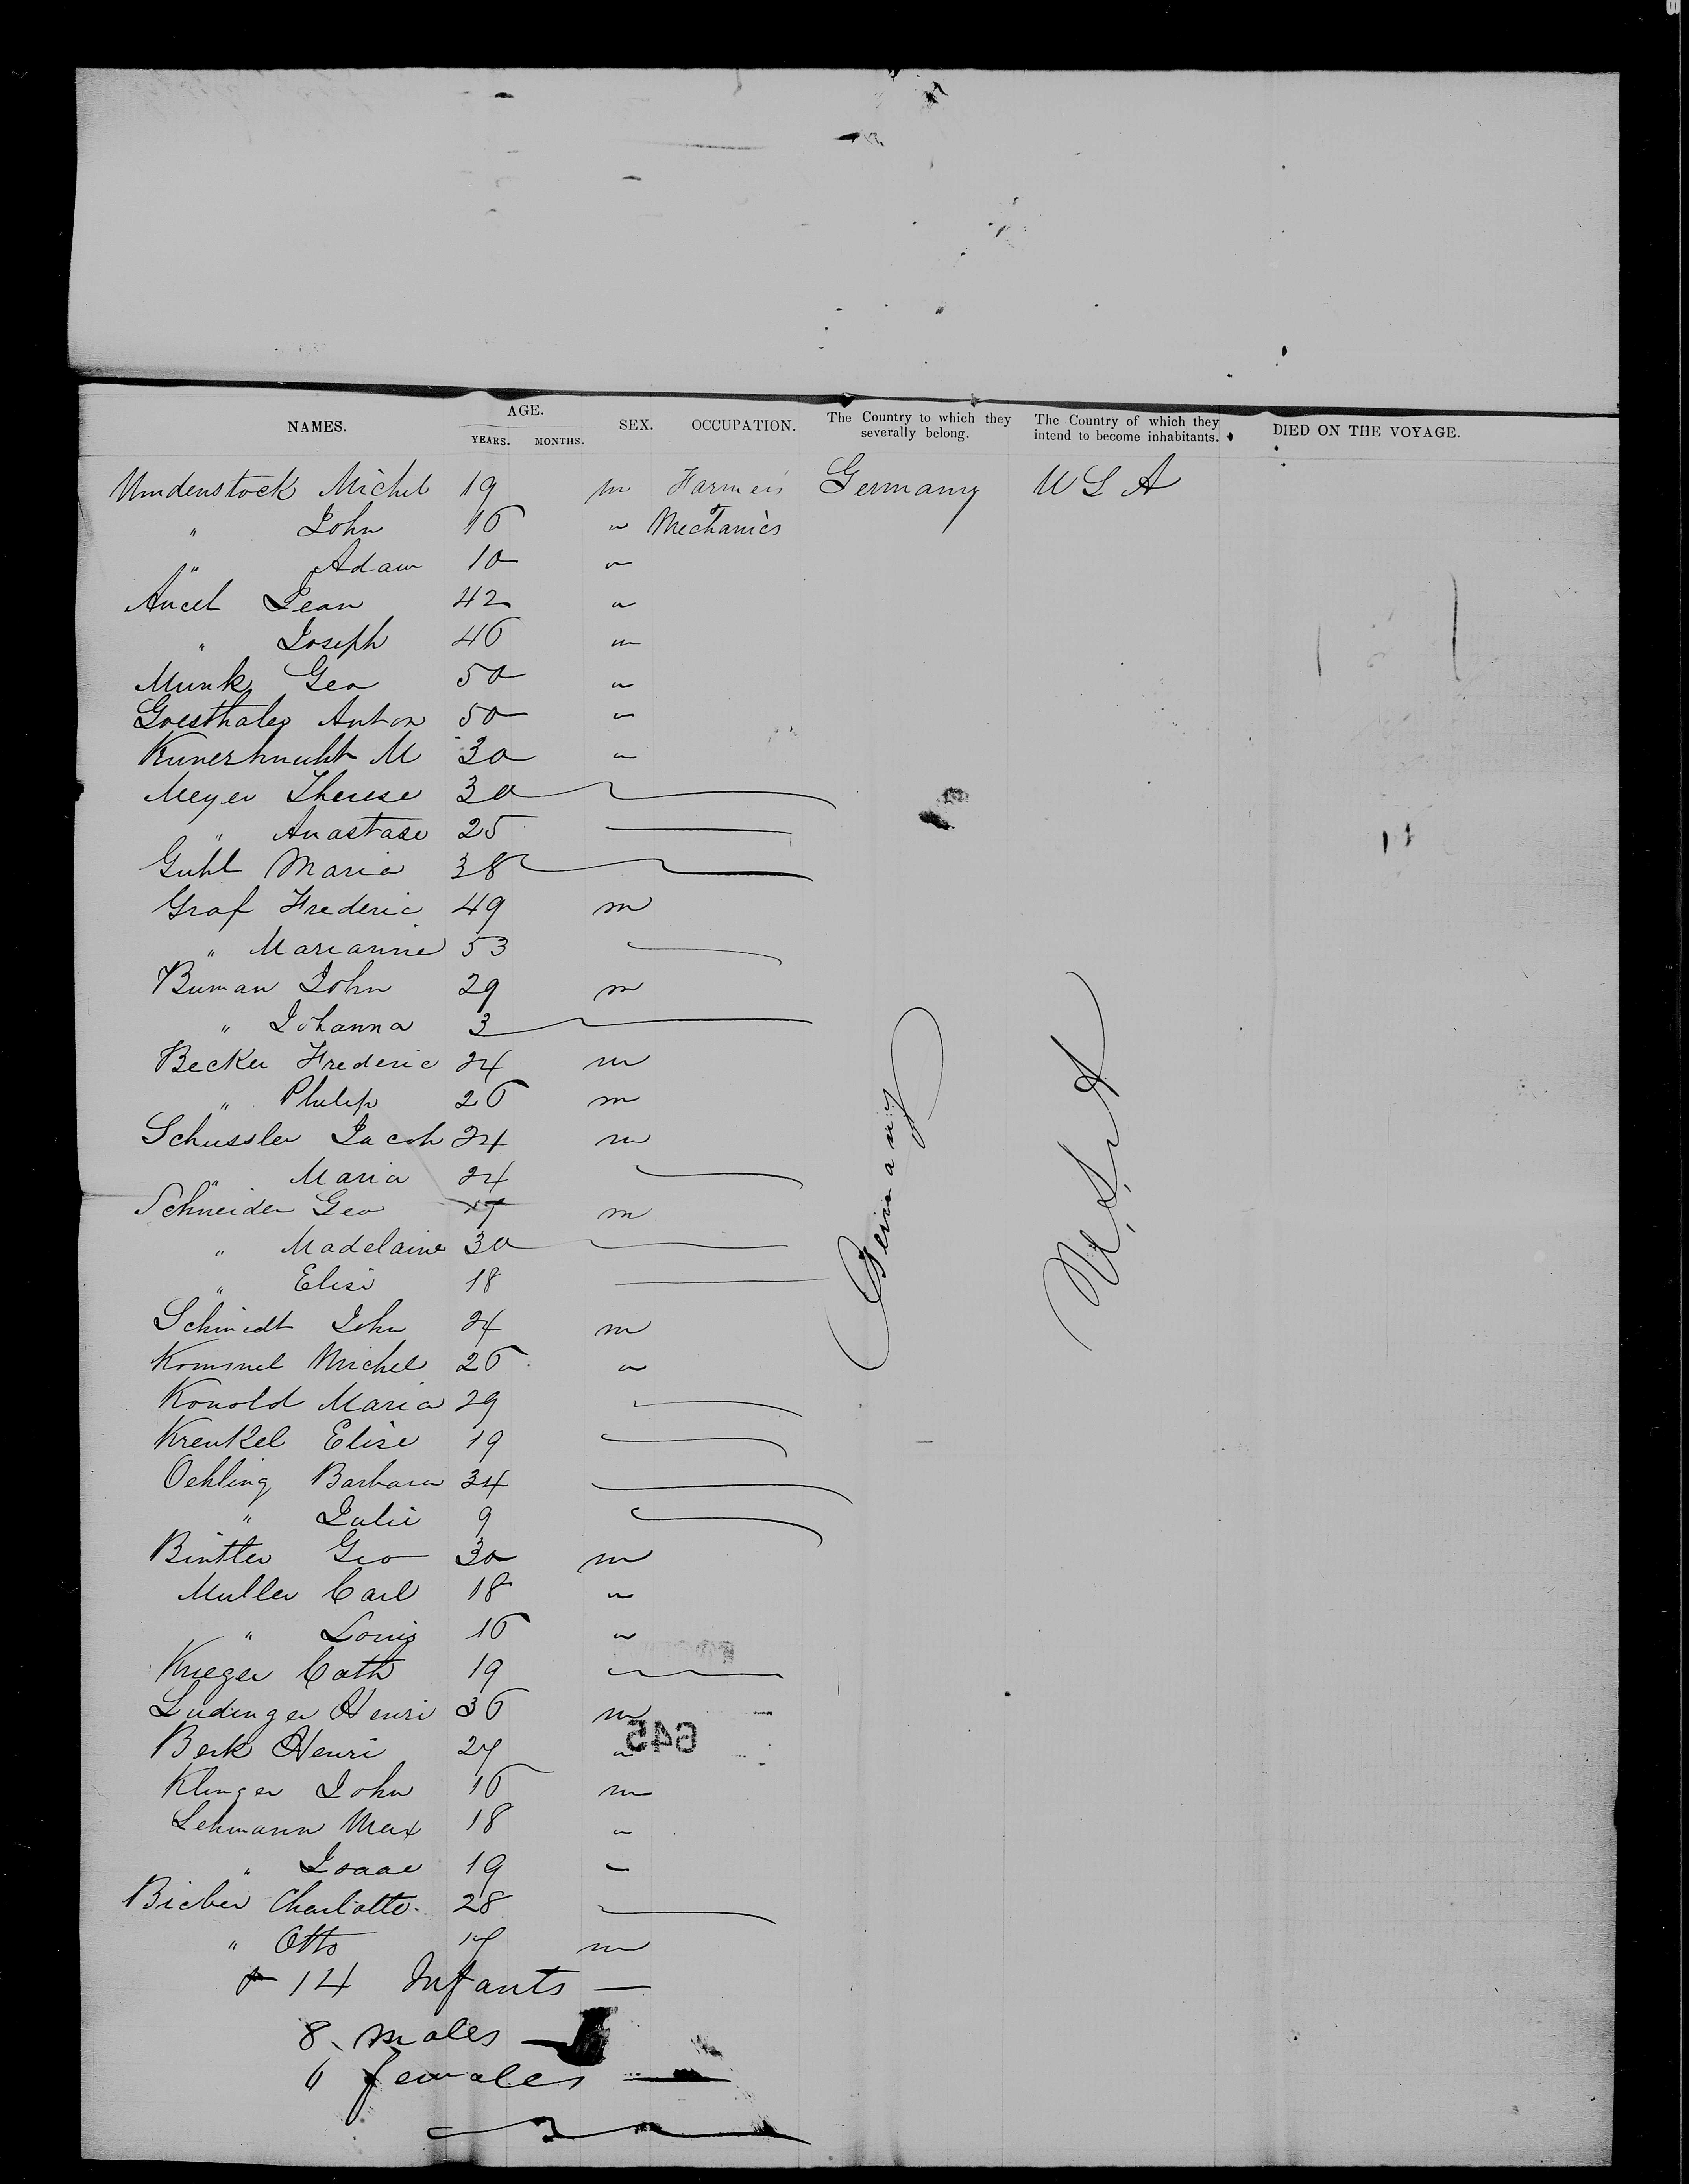 NAMES. AGE. YEARS. MONTHS. SEX. OCCUPATION. The Country to which they severally belong. The Country of which they intend to become inhabitants. DIED ON THE VOYAGE.
Undenstock Michel 19 m Farmers Germany U S A
" John 16 " Mechanics
" Adam 10 "
Ancel Jean 42 "
" Joseph 46 "
Munk Geo 50 "
Anton 50 "
M 30 "
Meyer Therese 30
" Anastase 25
Guhl Maria 38
Graf Frederic 49 m
" Marianne 53
Buman John 29 m
" Johanna 3
Becker Frederic 24 m
" Philip 26 m
Schussler Jacob 24 m
" Maria 24
Schneider Geo 17 m
" Madelaine 30
" Elise 18
Schmidt John 24 m
Kommel Michel 26 "
Konold Maria 29
Krenkel Elise 19
Oehling Barbara 34
" Julie 9
Bintler Geo 30 m
Muller Carl 18 "
" Louis 16 "
Krieger Cath 19
Ludinger Henri 36 m
Berk Henri 27 "
Klinger John 16 m
Lehmann Max 18 "
" Isaac 19 "
Bieber Charlotte 28
" Otto 17 m
+ 14 Infants —
8 males —
6 females —
Germany
U.S.A
645